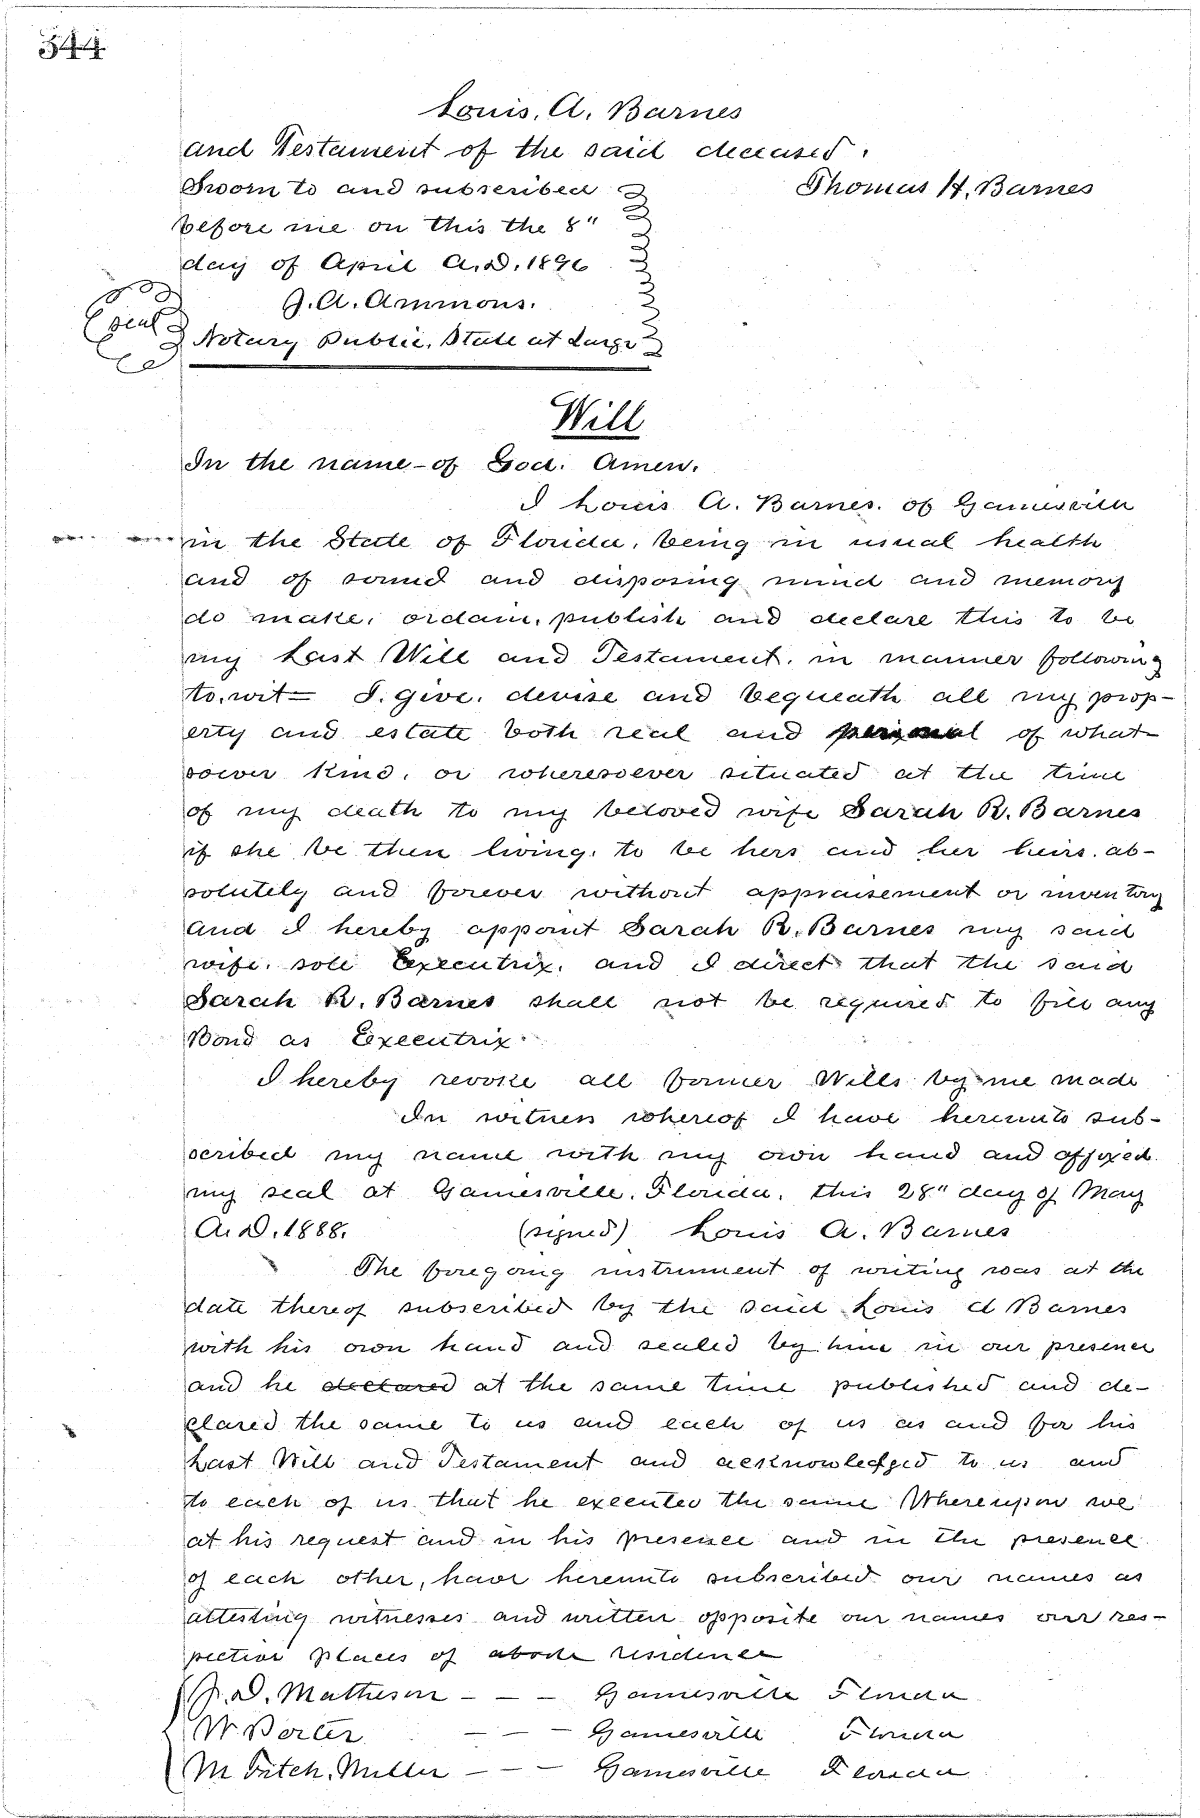 344
Louis. A. Barnes
and Testament of the said deceased.
Sworn to and subscribed
Thomas H. Barnes
before me on this the 8"
day of April A.D. 1896
J. A. Ammons.
(seal)
Notary Public. State at Large
Will
In the name of God. Amen.
I Louis A. Barnes. of Gainesville
in the State of Florida, being in usual health
and of sound and disposing mind and memory
do make, ordain, publish and declare this to be
my Last Will and Testament. in manner following
to. wit= I. give. devise and bequeath all my prop-
erty and estate both real and personal of what-
soever kind, or wheresoever situated at the time
of my death to my beloved wife Sarah R. Barnes
if she be then living. to be hers and her heirs. ab-
solutely and forever without appraisement or inventory
And I hereby appoint Sarah R. Barnes my said
wife. sole Executrix. and I direct that the said
Sarah R. Barnes shall not be required to file any
Bond as Executrix.
I hereby revoke all former Wills by me made
In witness whereof I have hereunto sub-
scribed my name with my own hand and affixed
my seal at Gainesville. Florida. this 28" day of May
A.D. 1888. (signed) Louis A. Barnes
The foregoing instrument of writing was at the
date thereof subscribed by the said Louis A Barnes
with his own hand and sealed by him in our presence
and he declared at the same time published and de-
clared the same to us and each of us as and for his
Last Will and Testament and acknowledged to us and
to each of us that he executed the same Whereupon we
at his request and in his presence and in the presence
of each other, have hereunto subscribed our names as
attesting witnesses and written opposite our names our res-
pective places of abode residence
J. D. Matheson - - - Gainesville Florida
W Porter - - - Gainesville Florida
M Fitch. Miller - - - Gainesville Florida